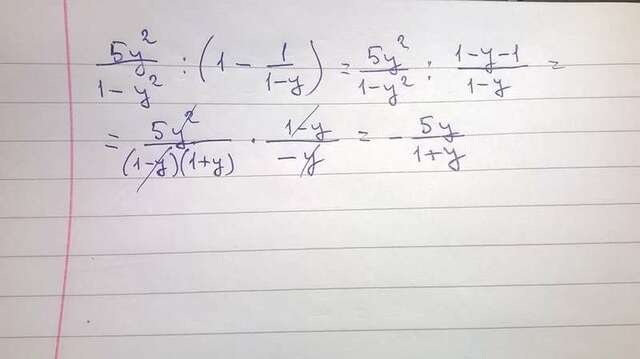 5y²/(1 - y²) : (1 - 1/(1-y)) = 5y²/(1-y²) : (1-y-1)/(1-y) =
= 5y²/((1-y)(1+y)) · (1-y)/(-y) = - 5y/(1+y)